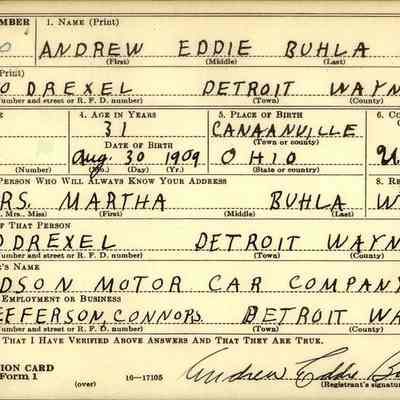 MBER 1. NAME (Print)
ANDREW EDDIE BUHLA
(First) (Middle) (Last)
Print)
O DREXEL DETROIT WAYN
umber and street or R. F. D. number) (Town) (County)
4. AGE IN YEARS 5. PLACE OF BIRTH 6. CO
31 CANAANVILLE
DATE OF BIRTH (Town or county)
Aug. 30 1909 OHIO U
Number) (Mo.) (Day) (Yr.) (State or country)
PERSON WHO WILL ALWAYS KNOW YOUR ADDRESS 8. RE
RS. MARTHA BUHLA W
Mrs., Miss) (First) (Middle) (Last)
OF THAT PERSON
DREXEL DETROIT WAYN
umber and street or R. F. D. number) (Town) (County)
R'S NAME
DSON MOTOR CAR COMPANY
EMPLOYMENT OR BUSINESS
EFFERSON, CONNORS, DETROIT WA
umber and street or R. F. D. number) (Town) (County)
THAT I HAVE VERIFIED ABOVE ANSWERS AND THAT THEY ARE TRUE.
ION CARD
Form 1 (over) 16—17105 Andrew Eddie Bu
(Registrant's signature)